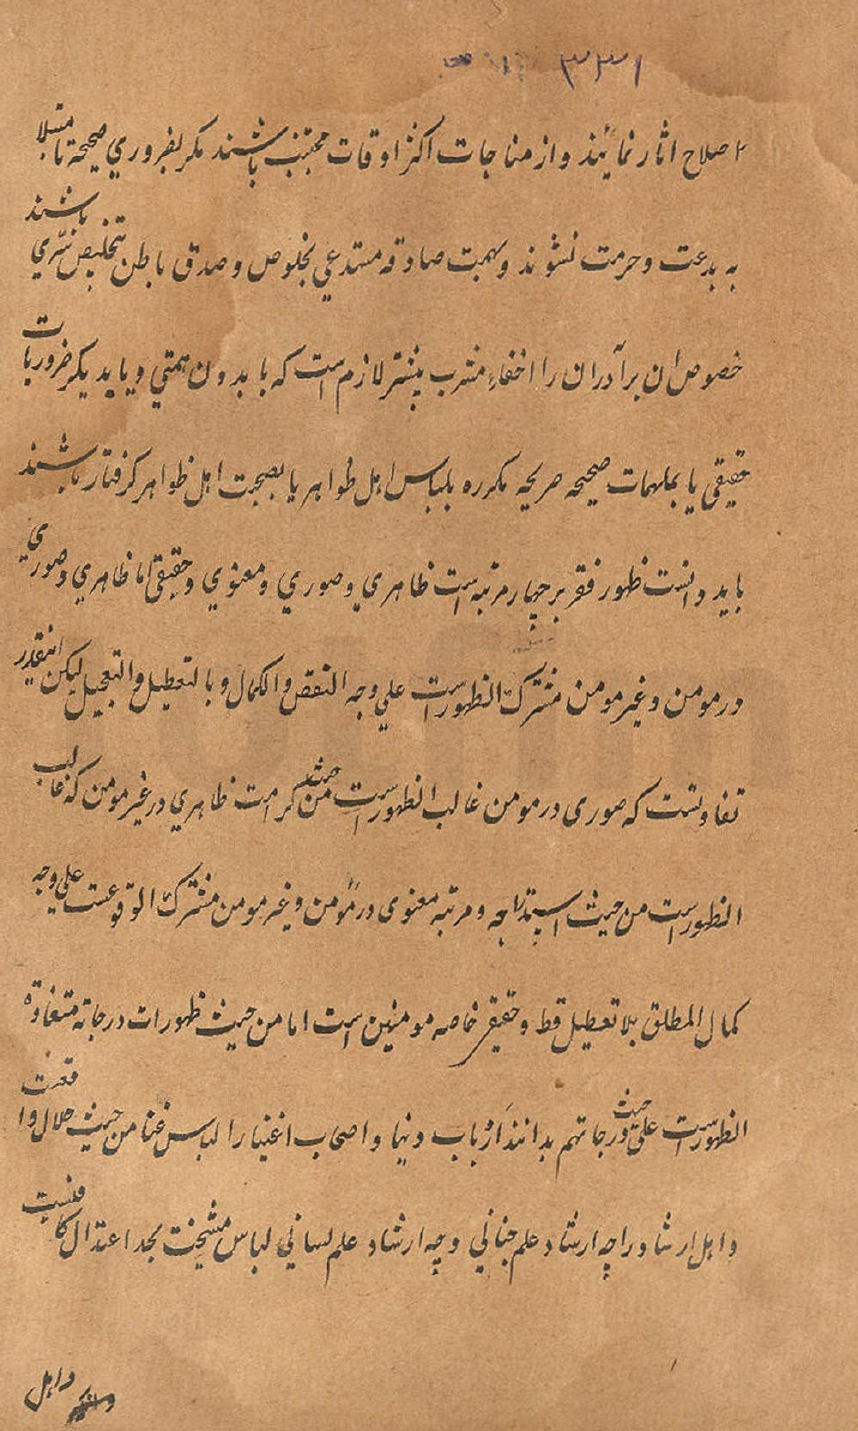 ۳۳۱
اصلاح اثار نمایند و از مناجات اکثر اوقات مجتنب باشند مکر بضروري صحیحه تا مبتلا
به بدعت و حرمت نشوند و بهمت صادقه مستدعي بخلوص و صدق باطن بتخلیص باشند
خصوص ان برادران را اخفاء مشرب بیشتر لازم است که با بدون همتي و یا بدیکر ضروریات
حقیقي یا بملهمات صحیحه صریحه مکرره بلباس اهل ظواهر یا بصحبت اهل ظواهر کرفتار باشند
باید دانست ظهور فقر بر چهار مرتبه است ظاهري و صوري و معنوي و حقیقي اما ظاهري و صوري
در مومن و غیر مومن مشترک الظهور است علي وجه النقص والکمال و بالتعطیل والتعجیل لیکن اینقدر
تفاوتست که صوری در مومن غالب الظهور است من حیث کرامت ظاهري در غیر مومن که غالب
الظهور است من حیث استدراجه و مرتبه معنوی در مومن و غیر مومن مشترک الوقوعست علي وجه
کمال المطلق بلا تعطیل قط و حقیقي خاصه مومنین است اما من حیث ظهورات درجاته متفاوة
الظهور است علي حیث درجاتهم بدانند ارباب دنیا و اصحاب اغنیا را لباس غنا من حیث حلال واقعست
و اهل ارشاد را چه ارشاد علم جناني و چه ارشاد علم لساني لباس مشیخت بحد اعتدال کافیست
و اهل